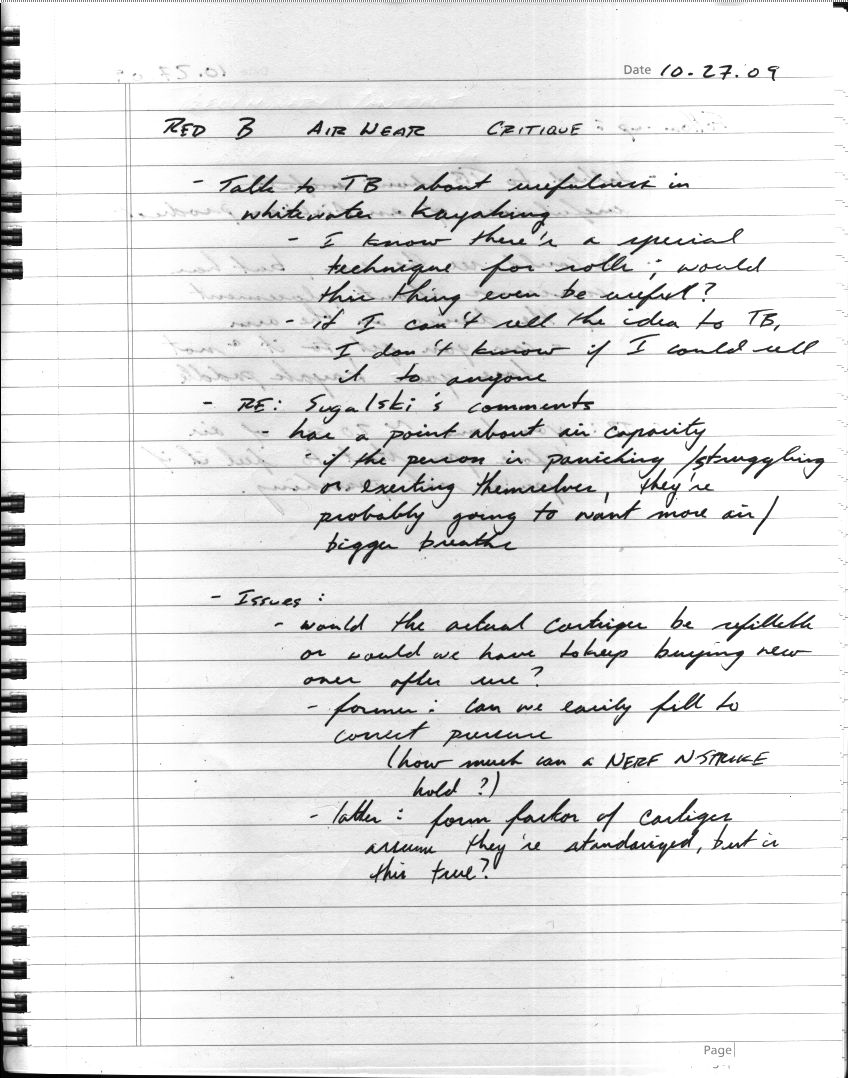 Date 10.27.09
RED B AIR WEAR CRITIQUE
- Talk to TB about usefulness in
whitewater kayaking
- I know there's a special
technique for rolls; would
this thing even be useful?
- if I can't sell the idea to TB,
I don't know if I could sell
it to anyone
- RE: Sugalski's comments
- has a point about air capacity
- if the person is panicking/struggling
or exerting themselves, they're
probably going to want more air/
bigger breaths
- Issues:
- would the actual be refillable
or would we have to keep buying new
ones after use?
- former: can we easily fill to
correct pressure
(how much can a NERF N-STRIKE
hold?)
- latter: form factor of
assume they're standarized, but is
this true?
Page